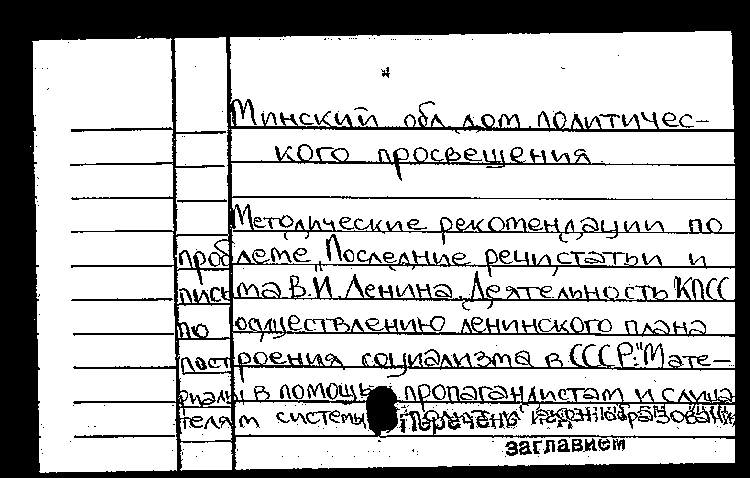 Минский обл. дом политичес-
кого просвещения
Методические рекомендации по
проблеме "Последние речи, статьи и
письма В.И. Ленина. Деятельность КПСС
по осуществлению ленинского плана
построения социализма в СССР." Мате-
риалы в помощь пропагандистам и слуша
телям системы
Перечень под
заглавием